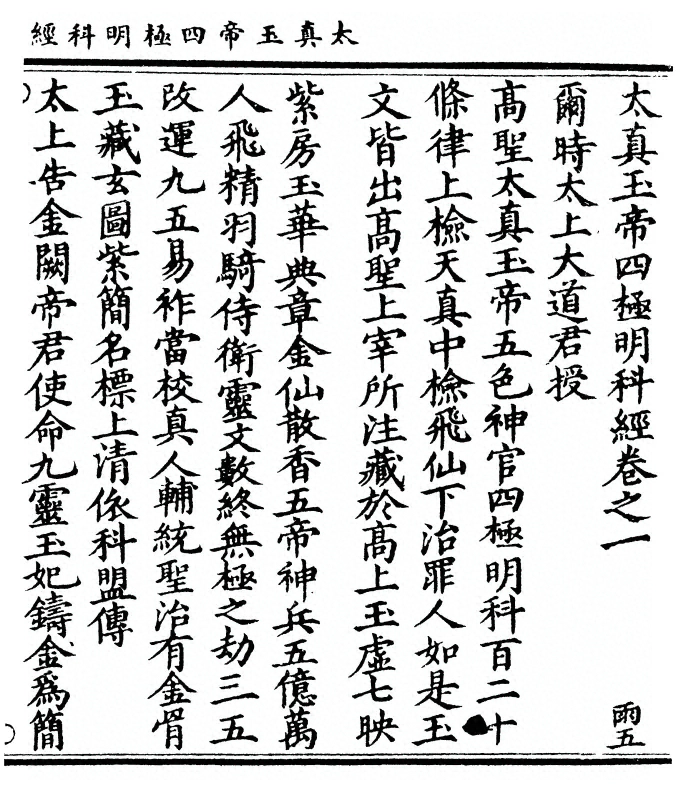 太真玉帝四極明科經
太真玉帝四極明科經卷之一
雨五
爾時太上大道君授
高聖太真玉帝五色神官四極明科百二十
條律上檢天真中檢飛仙下治罪人如是玉
文皆出高聖上宰所注藏於高上玉虛七映
紫房玉華典章金仙散香五帝神兵五億萬
人飛精羽騎侍衛靈文數終無極之劫三五
改運九五易祚當校真人輔統聖治有金骨
玉藏玄圖紫簡名標上清依科盟傳
太上告金闕帝君使命九靈玉妃鑄金爲簡